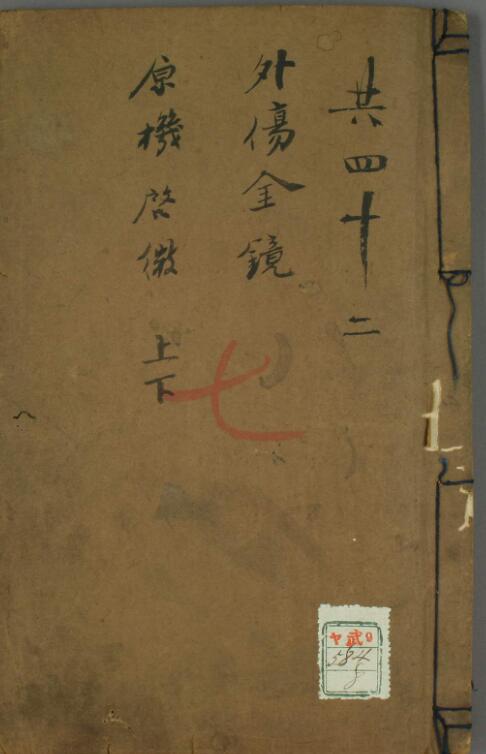 共四十二
外傷金鏡
原機啓微 上下
七
ヤ武9
584
8